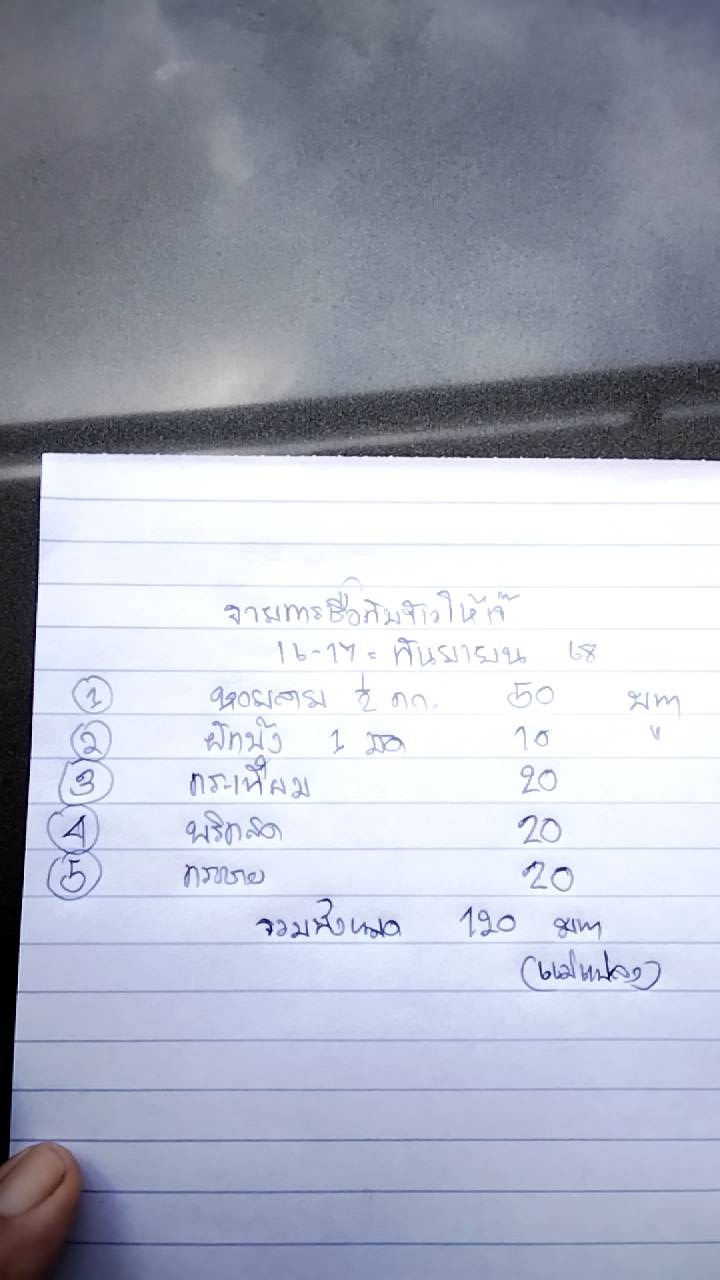 รายการซื้อกับข้าวให้เจ๊
16-17 = กันยายน 68
1 หอยลาย ½ กก. 50 บาท
2 ผักบุ้ง 1 มัด 10 "
3 กระเทียม 20
4 พริกสด 20
5 กระชาย 20
รวมทั้งหมด 120 บาท